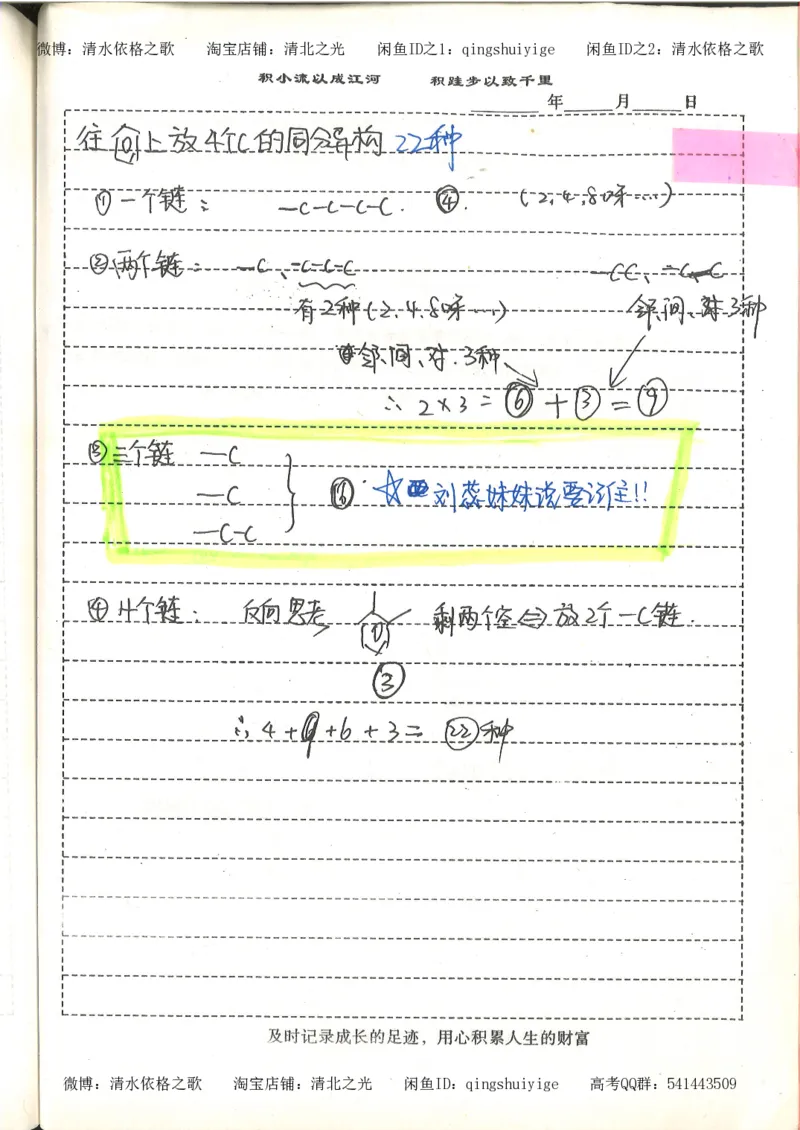 微博：清水依格之歌　淘宝店铺：清北之光　闲鱼ID之1：qingshuiyige　闲鱼ID之2：清水依格之歌
积小流以成江河　积跬步以致千里
年　月　日
往上放4个C的同分异构 22种
① 一个链： —C—C—C—C. ④. (2,4,8呀……)
② 两个链： —C、—C—C—C　—CC、—C—C
有2种(2.4.8呀……)　邻、间、对 3种
邻、间、对. 3种、
∴ 2×3=⑥+③=⑨
③ 三个链 —C
—C ⑥ ☆ 刘蕊妹妹说要记住!!
—C—C
④ 4个链： 反向思考　剩两个空⇔放2个—C链.
③
∴ 4+9+6+3= ㉒种
及时记录成长的足迹，用心积累人生的财富
微博：清水依格之歌　淘宝店铺：清北之光　闲鱼ID：qingshuiyige　高考QQ群：541443509